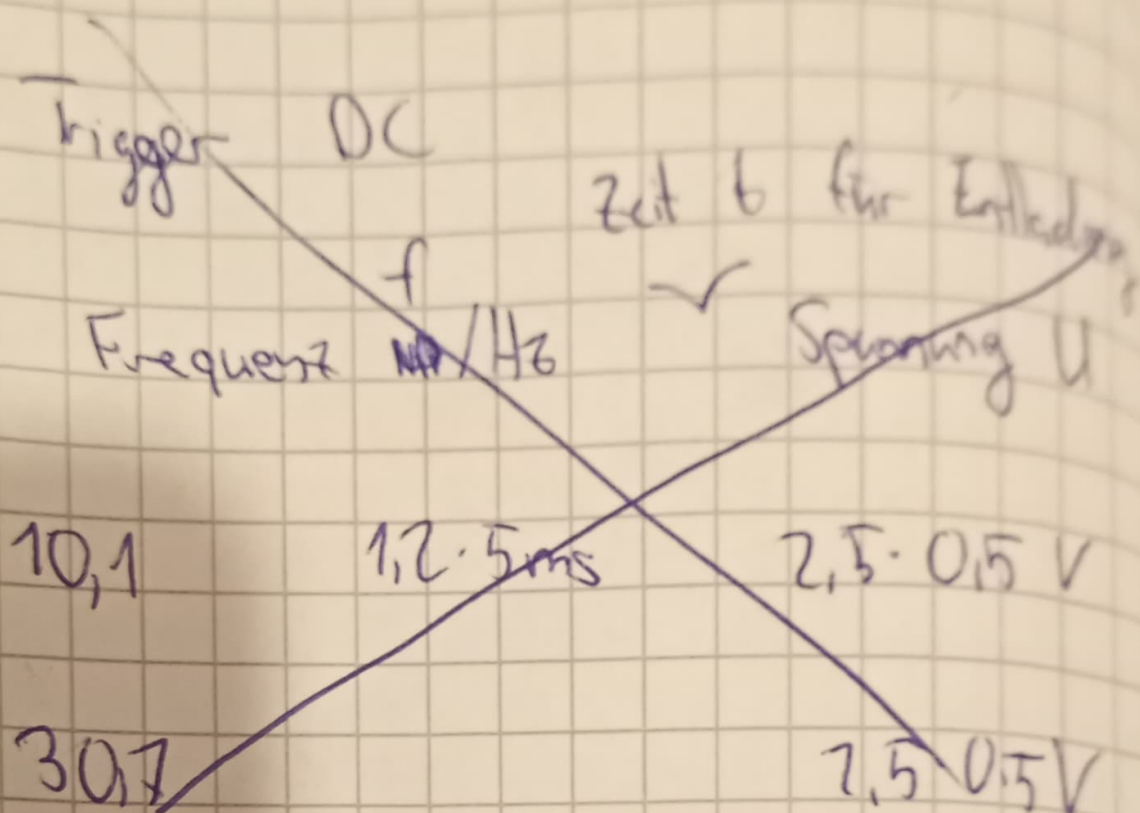 Trigger DC
Zeit t für Entladung
f
Frequenz /Hz Spannung U
10,1 1,2 · 5ms 2,5 · 0,5 V
30,7 2,5 0,5V